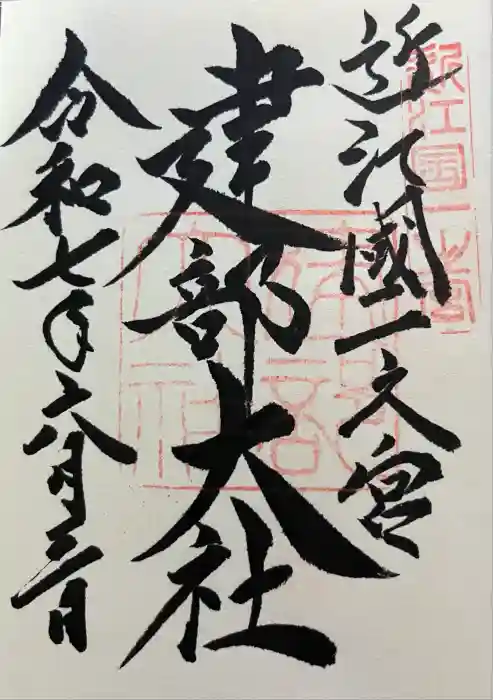 近江國一之宮
建部大社
令和七年六月三日
近江國一之宮
建部大社